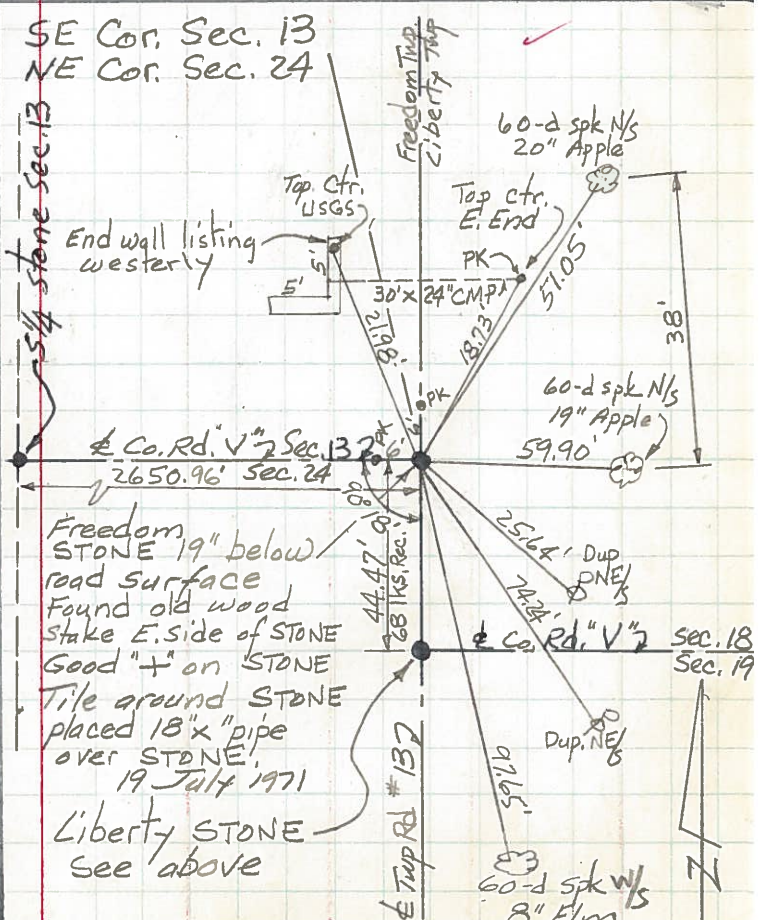 SE Cor. Sec. 13
NE Cor. Sec. 24
S¼ Stone Sec. 13
Freedom Twp
Liberty Twp
60-d spk N/s
20" Apple
Top. Ctr.
USGS
Top ctr.
E. End
End wall listing
westerly
PK
5'
5'
30' x 24" CMP
57.05'
21.98'
18.73'
38'
PK
6'
60-d spk N/s
19" Apple
℄ Co. Rd. "V" Sec. 13
PK
6'
59.90'
2650.96' Sec. 24
90°
Freedom
STONE 19" below
road surface
Found old wood
stake E. side of STONE
Good "+" on STONE
Tile around STONE
placed 18" x "pipe
over STONE.
19 July 1971
44.47'
68 lks. Rec.
25.64'
Dup.
NE/s
74.24'
℄ Co. Rd. "V" Sec. 18
Sec. 19
Dup. NE/s
97.65'
Liberty STONE
See above
℄ Twp Rd. # 137
N
60-d spk W/s
8" Elm